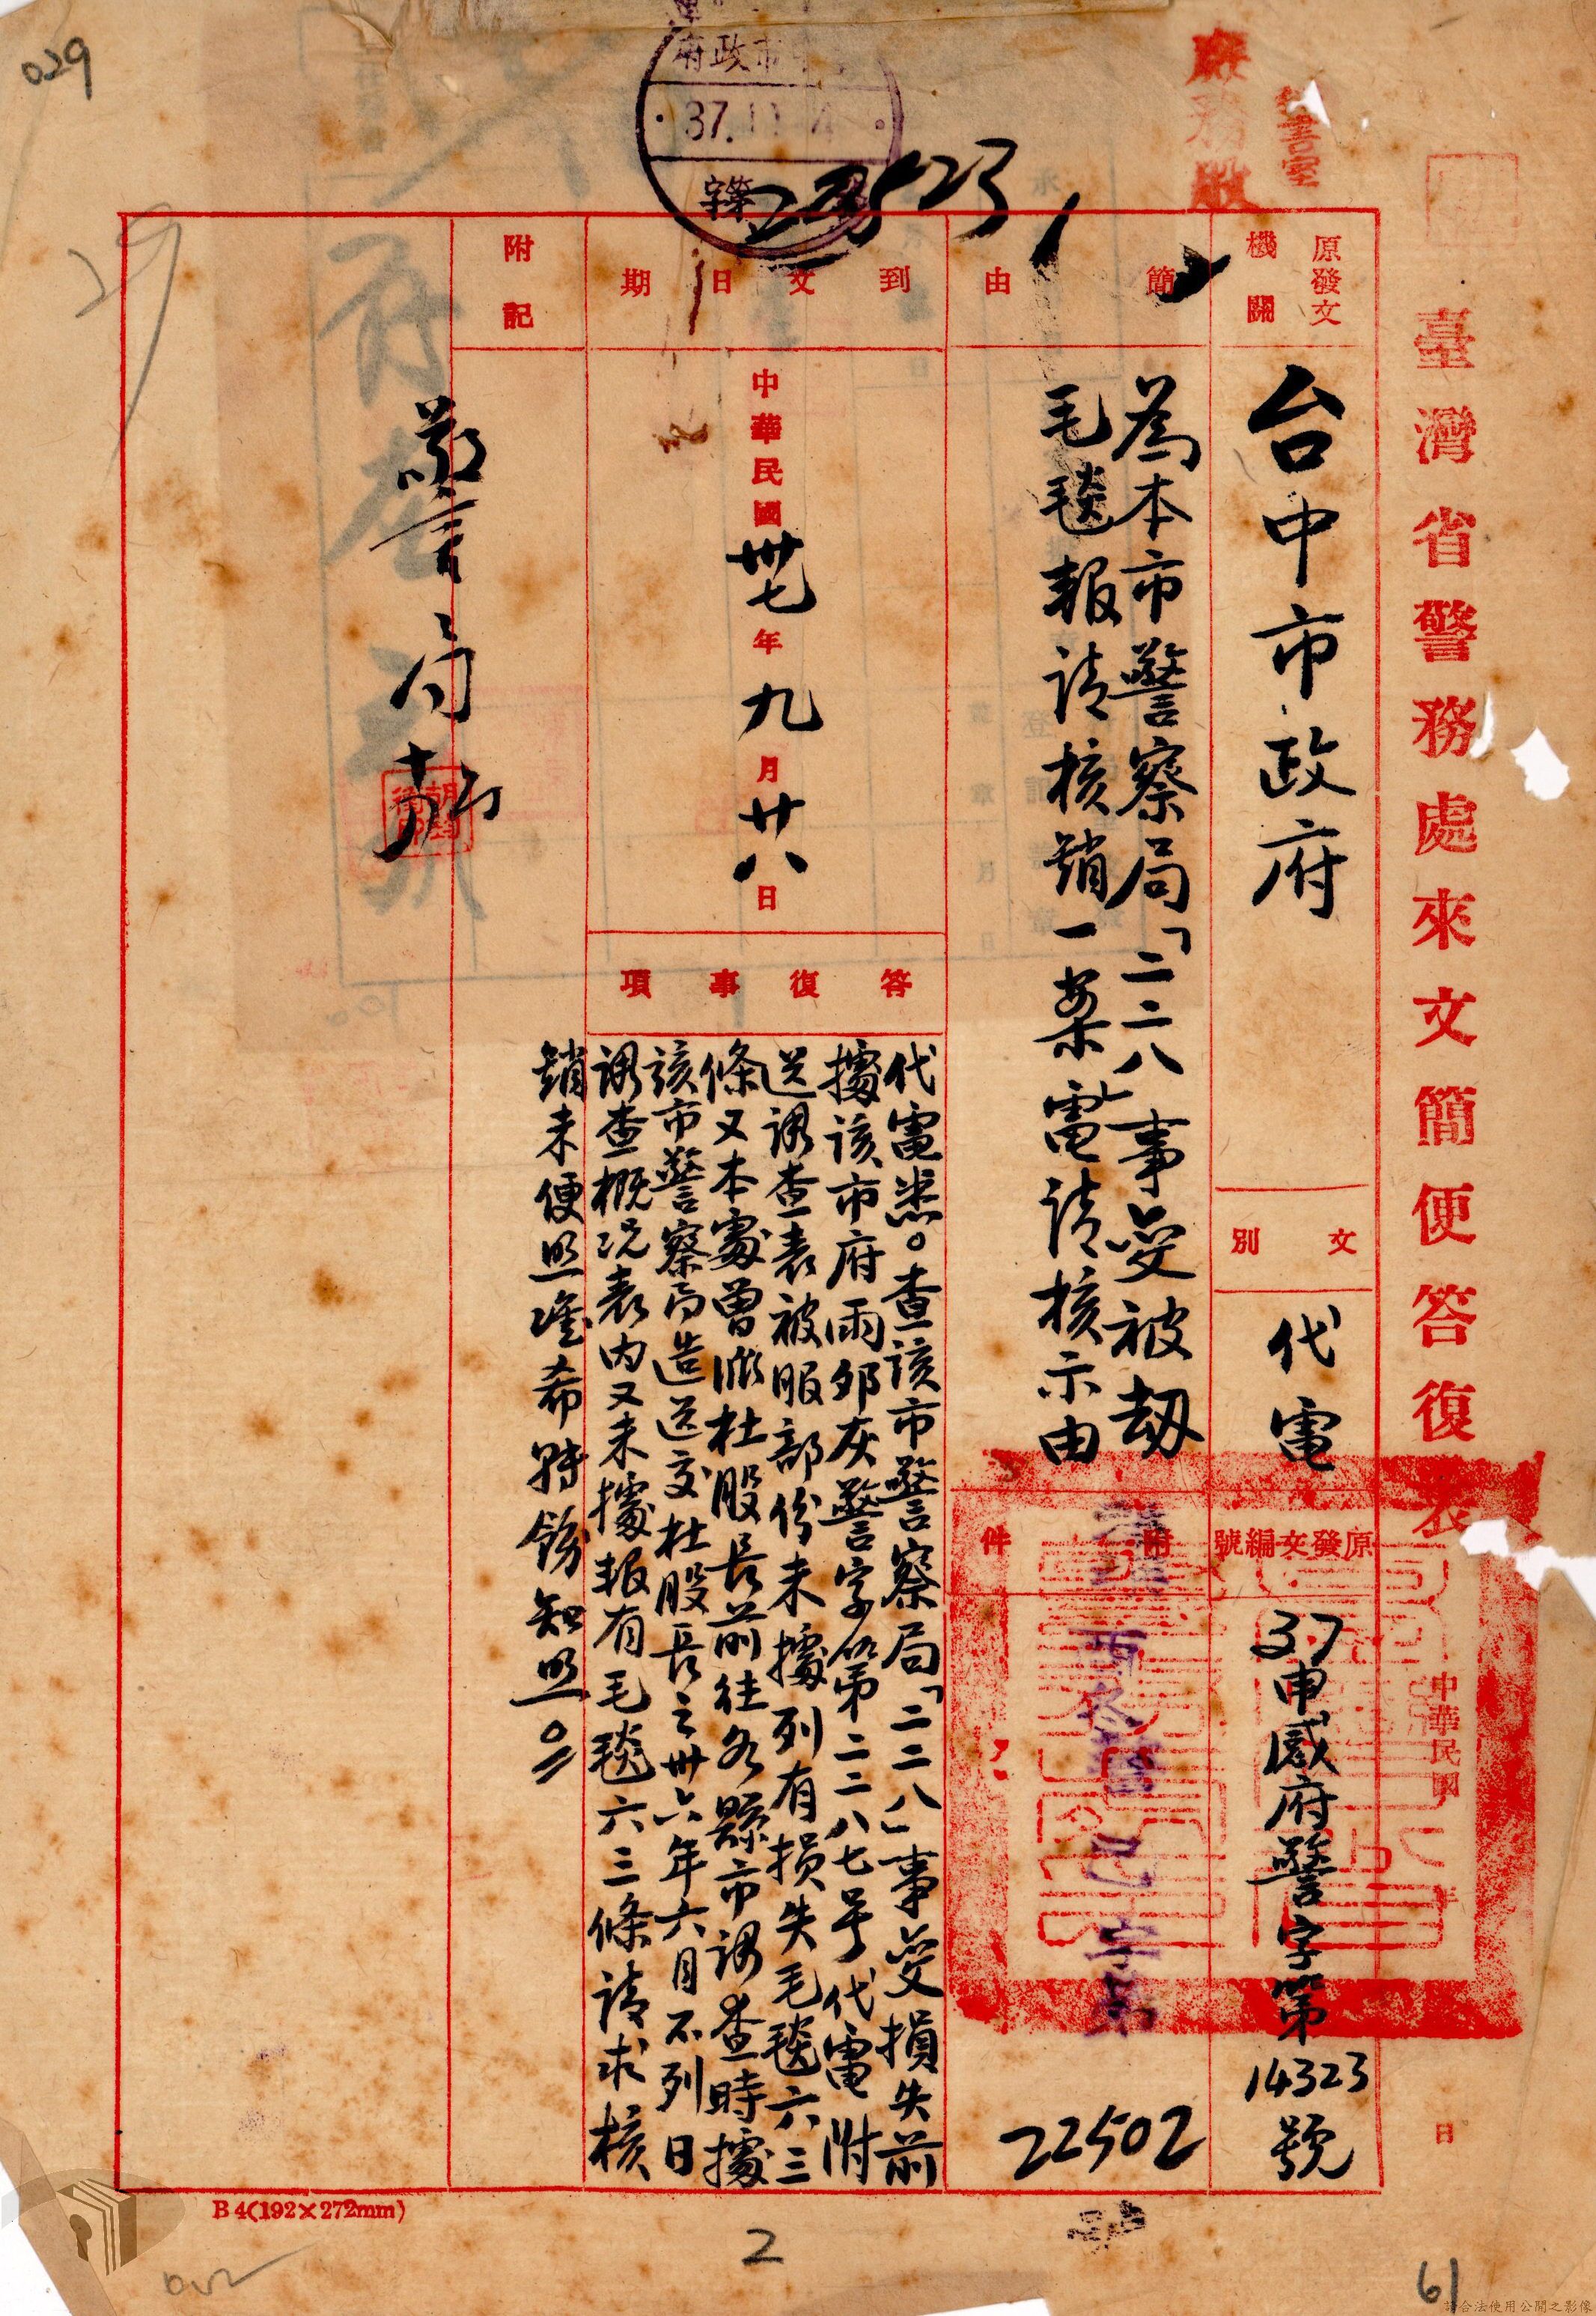 臺灣省警務處來文簡便答復表
中華民國 年 日
原發文機關
台中市政府
文別
代電
原發文編號
37申咸府警字第14323號
簡由
為本市警察局「二二八」事變被劫
毛毯報請核銷一案電請核示由
附件
22502
到文日期
中華民國卅七年九月廿八日
答復事項
代電悉。查該市警察局「二二八」事變損失前
據該市府丙邜灰警字第二二八七号代電附
送調查表被服部份未據列有損失毛毯六三
條又本處曾派杜股長前往各縣市調查時據
該市警察局造送交杜股長之卅六年六月不列日
調查概況表內又未據報有毛毯六三條請求核
銷未便照准希轉飭知照。
附記
警局
府政市
37.11.4
字第
23523
029
29
警室
B4(192×272mm)
2
61
請合法使用公開之影像